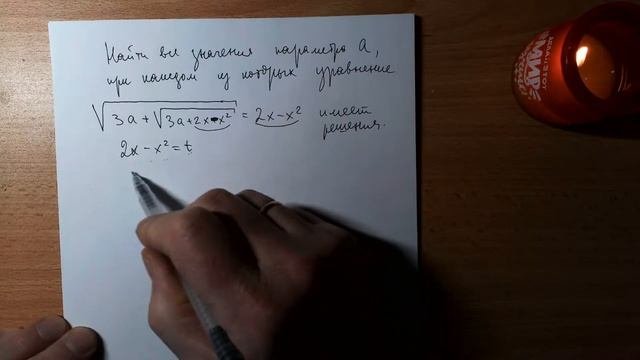 Найти все значения параметра a,
при каждом из которых уравнение
√(3a + √(3a + 2x - x²)) = 2x - x² имеет
решения.
2x - x² = t
МИР